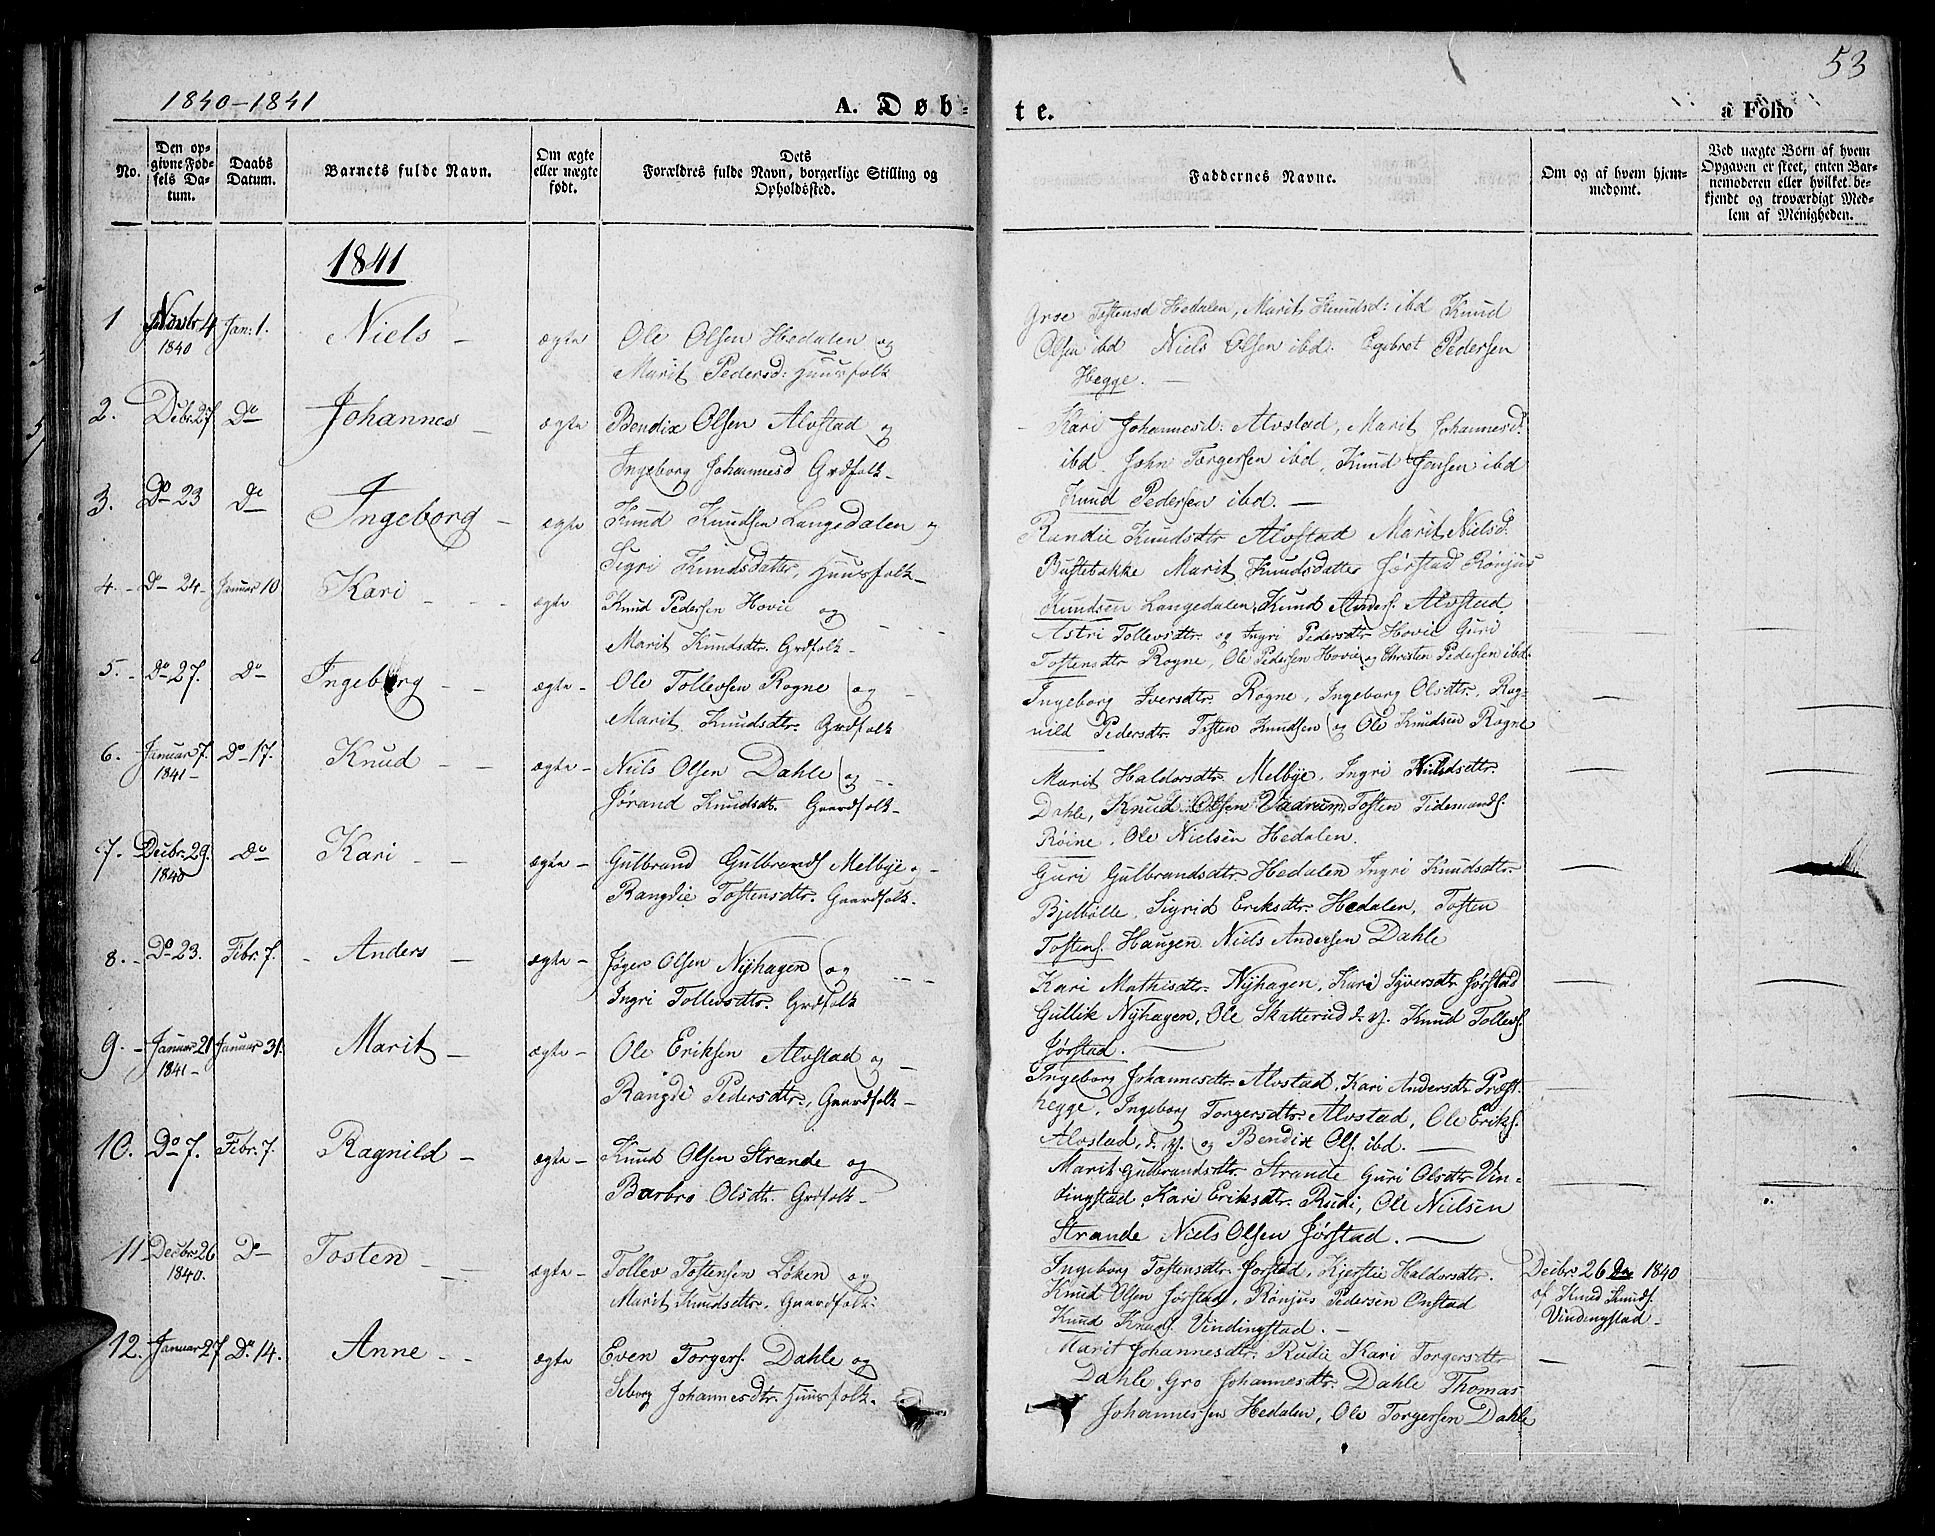 53
1840-1841
A. Døb-
te.
a Folio
No.
Den op-
givne Fød-
sels Da-
tum.
Daabs
Datum.
Barnets fulde Navn.
Om ægte
eller uægte
født.
Dets
Forældres fulde Navn, borgerlige Stilling og
Opholdssted.
Faddernes Navne.
Om og af hvem hjem-
medøbt.
Ved uægte Børn af hvem
Opgaven er skeet, enten Bar-
nemoderen eller hvilket be-
kjendt og troværdigt Med-
lem af Menigheden.
1841
1 Novbr 4 Jan: 1. Niels – ægte Ole Olsen Hedalen og
1840 Marit Pedersd: Huusfolk
Groe Tostensd Hedalen, Marit Knudsd: ibd Knud
Olsen ibd Niels Olsen ibd. Egebret Pedersen
Hegge. –
2. Debr. 27 Do Johannes – ægte Bendix Olsen Alvstad og
Ingeborg Johannesd Grdfolk –
Kari Johannesd: Alvstad, Marit Johannesd.
ibd. John Torgersen ibd, Knud Jensen ibd
Knud Pedersen ibd. –
3. Do 23 Do Ingeborg – ægte Knud Knudsen Langedalen og
Sigri Knudsdatter, Huusfolk –
Randie Knudsdtr Alvstad Marit Nielsd.
Bustebakke Marit Knudsdatter Jørstad Rønjus
Knudsen Langedalen, Knud Anders. Alvstad.
4. – Do 24 – Januar 10 Kari – – ægte Knud Pedersen Hovie og
Marit Knudsdtr. Grdfolk –
Astri Tollevsdtr. og Ingri Pedersdtr Hovie Guri
Tostensdtr Rogne, Ole Pedersen Hovie og Christen Pedersen ibd.
5. Do 27. Do Ingeborg – – ægte – Ole Tollevsen Rogne og –
Marit Knudsdtr. Grdfolk
Ingeborg Iversdtr. Rogne, Ingeborg Olsdtr. Rog-
nild Pedersdtr. Tosten Knudsen og Ole Knudsen Rogne
6. Januar 7. Do 17. Knud – – ægte – Niels Olsen Dahle og –
1841 – Jørand Knudsdtr. Gaardfolk –
Marit Haldorsdtr. Melbye, Ingri Nielsdtr.
Dahle, Knud Olsen Vadrum, Tosten Tidemands.
Røine, Ole Nielsen Hedalen.
7. Decbr. 29. Do Kari – – ægte – Gulbrand Gulbrands Melbye og –
1840 Rangdie Tostensdtr. Gaardfolk –
Guri Gulbrandsdtr. Hedalen Ingri Knudsdtr.
Bjelbølle, Sigrid Eriksdtr. Hedalen, Tosten
Tostens. Haugen Niels Andersen Dahle
8. – Do 23. Febr. 7. – Anders – ægte – Olsen Nyhagen og – –
Ingri Tollevsdtr. Grdfolk
Kari Mathisdtr. Nyhagen, Kari Syversdtr Jørstad
Gullik Nyhagen, Ole Skatterud d. y. Knud Tollevs.
Jørstad. –
9. – Januar 21 Januar 31. Marit – ægte – Ole Eriksen Alvstad og –
1841 – Rangdi Pedersdtr., Gaardfolk –
Ingeborg Johannesdtr. Alvstad, Kari Andersdtr Præst-
hegge, Ingeborg Torgersdtr. Alvstad, Ole Eriks.
Alvstad, d. y. og Bendix Ols. ibd. –
10. Do 7. Febr. 7. Ragnild – ægte – Knud Olsen Strande og
Barbro Olsdtr. Grdfolk –
Marit Gulbrandsdtr. Strande Guri Olsdtr Vin-
dingstad, Kari Eriksdtr. Rudi, Ole Nielsen
Strande Niels Olsen Jørstad. –
11 Decbr. 26 Do Tosten – – ægte – Tollev Tostensen Løken og
1840. Marit Knudsdtr. Gaardfolk.
Ingeborg Tostensdtr. Jørstad, Kjerstie Haldorsdtr.
Knud Olsen Jørstad, Rønjus Pedersen Onstad
Knud Knuds. Vindingstad. –
Decbr 26 1840
af Knud Knuds.
Vindingstad –
12. Januar 27 Do. 14. Anne – – ægte Even Torgers. Dahle og
Seborg Johannesdtr. Huusfolk.
Marit Johannesdtr. Rudie Kari Torgersdtr
Dahle, Gro Johannesdtr. Dahle Thomas
Johannessen Hedalen, Ole Torgersen Dahle